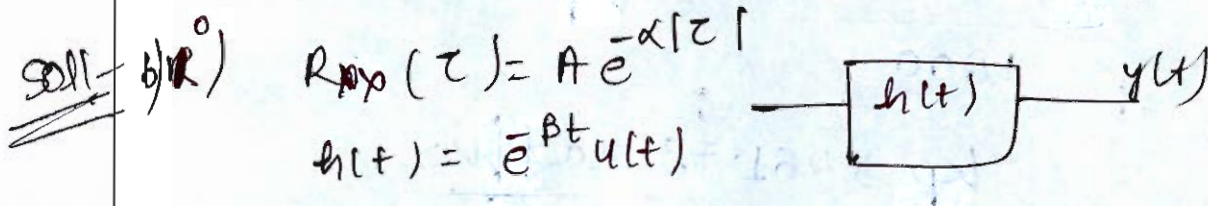 Soll- b) R_xx(τ) = A e^{-α|τ|}
h(t) = e^{-βt} u(t)
h(t)
y(t)